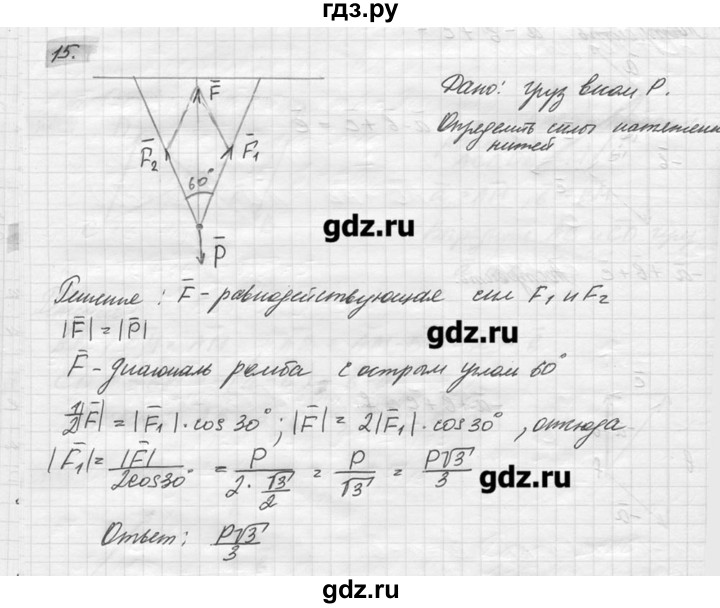 гдз.ру
15.
F̄
F̄₂ F̄₁
60°
P̄
Дано: груз весом P.
Определить силы натяжения
нитей
gdz.ru
Решение: F̄ - равнодействующая сил F₁ и F₂
|F̄| = |P̄|
gdz.ru
F̄ - диагональ ромба с острым углом 60°
1/2|F̄| = |F̄₁| · cos 30°; |F̄| = 2|F̄₁| · cos 30°, отсюда
|F̄₁| = |F̄|/2cos30° = P/(2 · √3/2) = P/√3 = P√3/3
gdz.ru
Ответ: P√3/3
gdz.ru